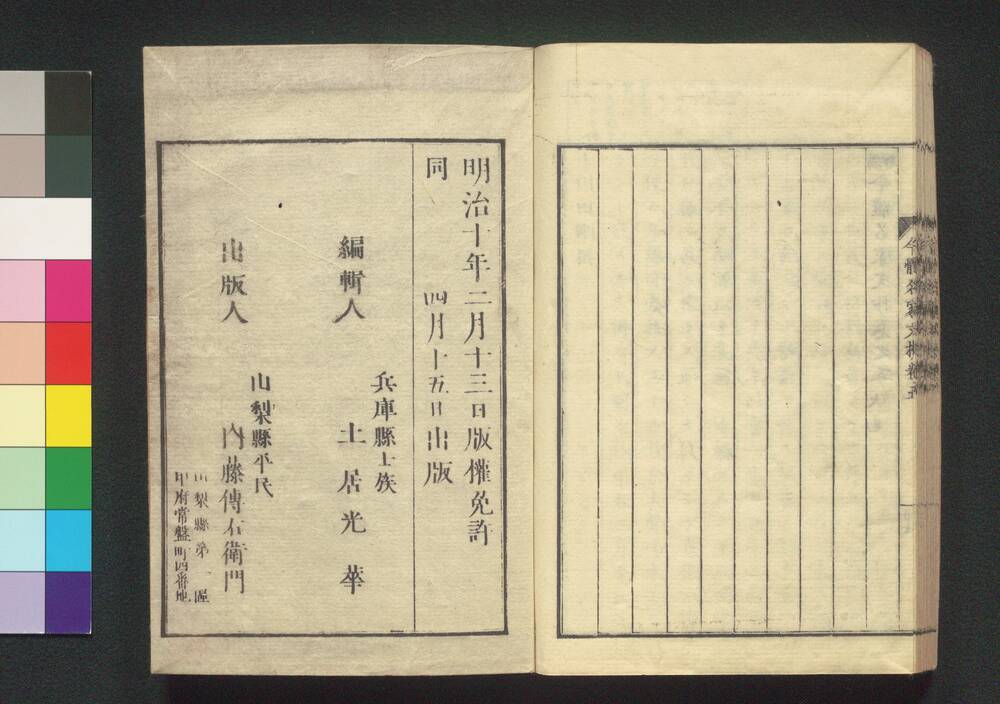 今體名家文抄卷五
明治十年二月十三日版權免許
同 四月十五日出版
兵庫縣士族
編輯人 土居光華
山梨縣平民
出版人 內藤傳右衛門
山梨縣第一區
甲府常盤町四番地